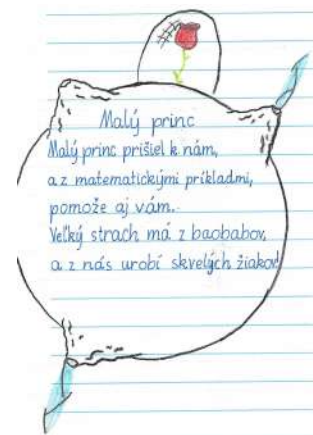 Malý princ
Malý princ prišiel k nám,
a z matematickými príkladmi,
pomože aj vám.
Veľký strach má z baobabov,
a z nás urobí skvelých žiakov!